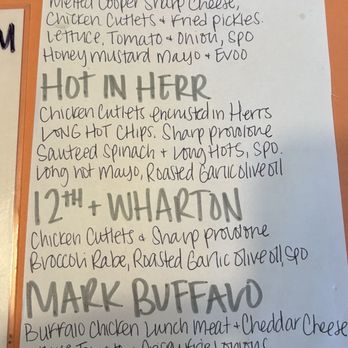 Melted Cooper Sharp Cheese,
Chicken Cutlets + Fried pickles.
Lettuce, Tomato + Onion, SPO
Honey mustard mayo + EVOO
HOT IN HERR
Chicken Cutlets encrusted in Herrs
LONG HOT CHIPS. Sharp provolone
Sauteed Spinach + Long Hots, SPO.
Long hot mayo, Roasted Garlic olive oil
12TH + WHARTON
Chicken Cutlets + Sharp provolone
Broccoli Rabe, Roasted Garlic olive oil, SPO
MARK BUFFALO
Buffalo Chicken Lunch Meat + Cheddar Cheese